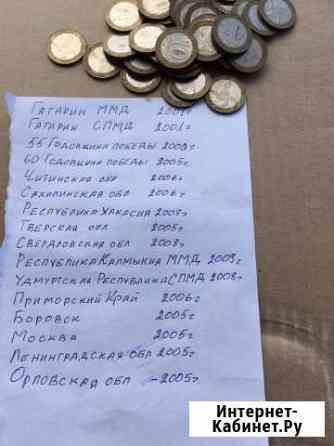 ГАГАРИН ММД 2001г
ГАГАРИН СПМД 2001г
55 ГОДОВЩИНА ПОБЕДЫ 2000г
60 ГОДОВЩИНА ПОБЕДЫ 2005г
ЧИТИНСКАЯ ОБЛ 2006г
САХАЛИНСКАЯ ОБЛ 2006г
РЕСПУБЛИКА ХАКАСИЯ 2007г
ТВЕРСКАЯ ОБЛ 2005г
СВЕРДЛОВСКАЯ ОБЛ 2008г
РЕСПУБЛИКА КАЛМЫКИЯ ММД 2009г
УДМУРТСКАЯ РЕСПУБЛИКА СПМД 2008г
ПРИМОРСКИЙ КРАЙ 2006г
БОРОВСК 2005г
МОСКВА 2005г
ЛЕНИНГРАДСКАЯ ОБЛ 2005г
ОРЛОВСКАЯ ОБЛ - 2005г
Интернет-
Кабинет.Ру